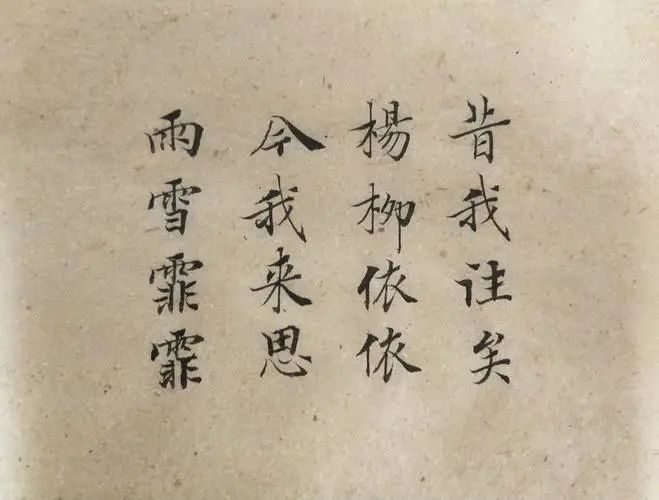 昔我往矣
楊柳依依
今我来思
雨雪霏霏